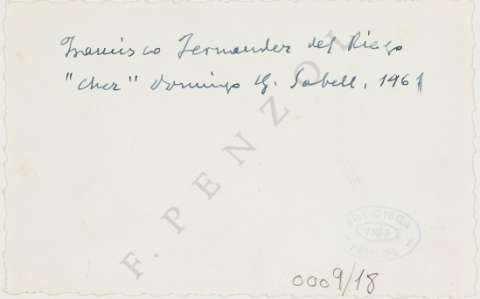 Francisco Fernandez del Riego
"chez" Domingo G. Sabell, 1961
F. PENZOL
BIBLIOTECA
0009/18